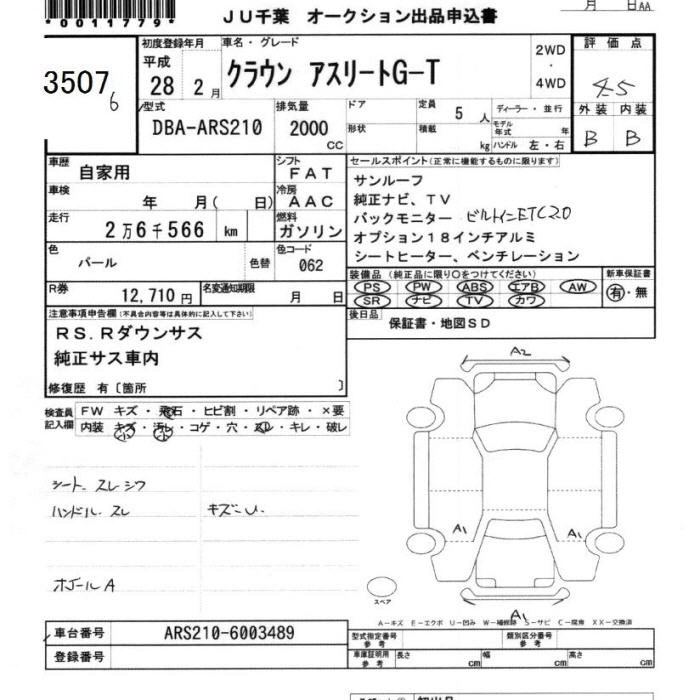 *0011779*
JU千葉 オークション出品申込書
月 日AA
初度登録年月 車名・グレード 評価点
平成 28 2月 クラウン アスリートG-T 2WD・4WD 4.5
3507
6
型式 排気量 ドア 定員 5人 ディーラー・並行 外装 内装
DBA-ARS210 2000cc 形状 積載 kg モデル年式 年 ハンドル 左・右 B B
車歴 自家用 シフト FAT セールスポイント(正常に機能するものに限ります)
車検 年 月( 日) 冷房 AAC サンルーフ
純正ナビ、TV
走行 2万6千566 km 燃料 ガソリン バックモニター ビルトインETC2.0
オプション18インチアルミ
色 パール 色替 色コード 062 シートヒーター、ベンチレーション
装備品(純正品に限り○をつけてください) 新車保証書
PS PW ABS エアB AW 有・無
SR ナビ TV カワ
R券 12,710円 名変通知期限 月 日
後日品 保証書・地図SD
注意事項申告欄(不具合内容等は具体的に記入して下さい)
RS.Rダウンサス
純正サス車内
修復歴 有〔箇所 〕
検査員記入欄 FW キズ・飛石・ヒビ割・リペア跡・×要
内装 キズ・汚レ・コゲ・穴・スレ・キレ・破レ
A2
シート スレシワ
ハンドル スレ キズU
A1 A1
ホイールA
スペア
A1
A-キズ E-エクボ U-凹み W-補修跡 S-サビ C-腐食 XX-交換済
車台番号 ARS210-6003489 型式指定番号 参考 類別区分番号 参考
登録番号 車庫証明用 参考 長さ cm 幅 cm 高さ cm